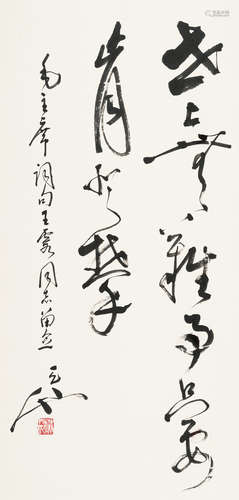 世上无难事只要
肯登攀
毛主席词句王霞同志留念